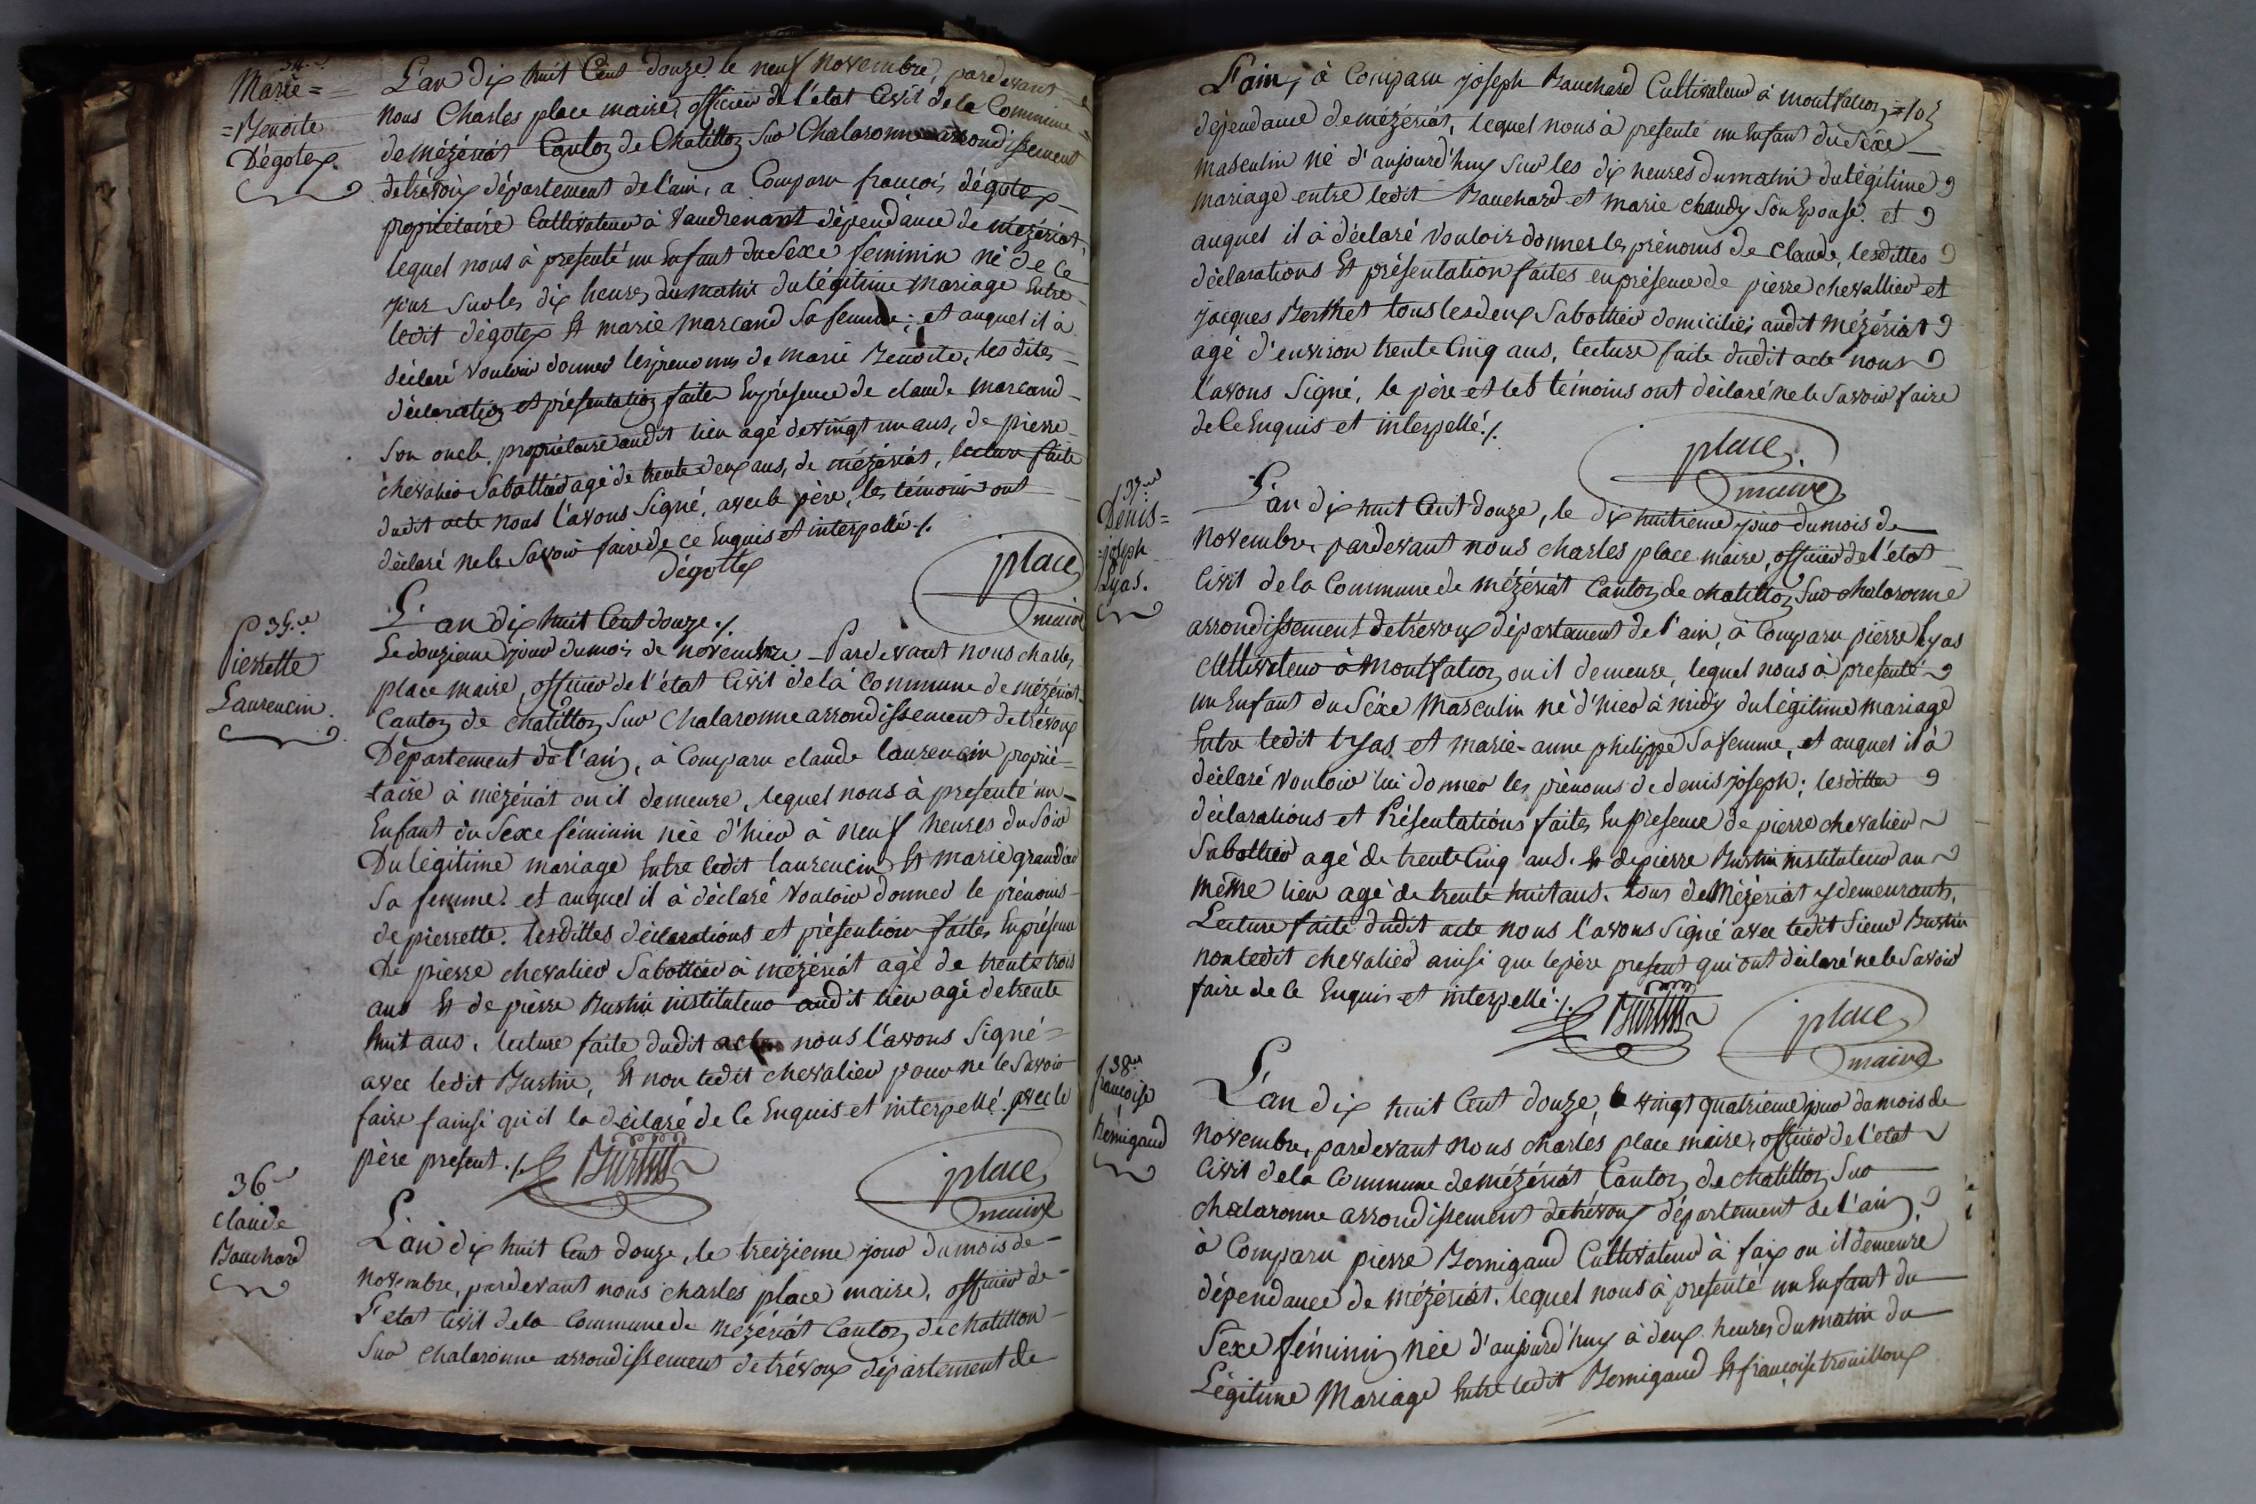 34.e
Marie =
= Benoite
Dégotex.
L'an dix huit Cent douze, le neuf novembre, pardevant
nous Charles place maire, officier de l'état Civil de la Commune
de mézériat Canton de Chatillon Sur Chalaronne arrondissement
de trévoux département de l'ain, a Comparu francois dégotex
propriétaire Cultivateur à Vaudrenant dépendance de mézériat,
lequel nous à presenté un Enfant du Sexe feminin né de ce
jour sur les dix heures du matin du légitime mariage Entre
ledit dégotex Et marie marcand sa femme; et auquel il à
déclaré vouloir donner les prenoms de marie Benoite, les dites
déclaration et présentation faite En présence de claude marcand
son oncle, propriétaire audit lieu agé de vingt un ans, de pierre
chevalier Sabottier agé de trente deux ans, de mézériat, lecture faite
dudit acte nous l'avons Signé, avec le père, les témoins ont
déclaré ne le Savoir faire de ce Enquis et interpellé ./.
Dégottex
place
maire
35.e
Pierrette
Laurencin.
L'an dix huit Cent douze ./.
Le douzieme jour du mois de novembre Pardevant nous charles
place maire, officier de l'état Civil de la Commune de mézériat
Canton de chatillon Sur Chalaronne arrondissement de trévoux
Département de l'ain, à Comparu claude laurencin proprié=
=taire à mézériat ou il demeure, lequel nous à presenté un
Enfant du Sexe féminin née d'hier à neuf heures du Soir
Du légitime mariage Entre ledit laurencin Et marie
Sa femme. et auquel il à déclaré vouloir donner le prénoms
de pierrette. lesdittes déclarations et présention faites En présence
De pierre chevalier Sabottier à mézériat agé de trente trois
ans Et de pierre Burtin instituteur audit lieu agé de trente
huit ans. lecture faite dudit acte nous l'avons Signé=
avec ledit Burtin, Et non ledit chevalier pour ne le Savoir
faire j ainsi qu'il la déclaré de Ce Enquis et interpellé. avec le
père présent ./.
Burtin
place
maire
36.e
claude
Bauchard
L'an dix huit Cent douze, le treizieme jour du mois de
Novembre, pardevant nous charles place maire, officier de
L'etat Civil de la Commune de mézériat Canton de chatillon
Sur chalaronne arrondissement de trévoux département de
L'ain, à Comparu joseph Bauchard Cultivateur à montfalcon
dépendance de mézériat, lequel nous à presenté un Enfant du Sexe
masculin né d'aujourd'huy sur les dix heures du matin du légitime
mariage entre ledit Bauchard et marie chaudy son Epouse. et
auquel il à déclaré vouloir donner les prénoms de claude, lesdittes
déclarations Et présentation faites en présence de pierre chevallier et
jacques Berthet tous les deux Sabottier domiciliés audit Mézériat
agé d'environ trente Cinq ans, lecture faite dudit acte nous
l'avons Signé, le père et les témoins ont déclaré ne le Savoir faire
de Ce Enquis et interpellé ./.
place
maire
37.e
Denis=
=joseph
Lyas.
L'an dix huit Cent douze, le dix huitieme jour du mois de
Novembre, pardevant nous charles place maire, officier de l'état
Civil de la Commune de mézériat Canton de chatillon Sur chalaronne
arrondissement de trévoux département de l'ain, à Comparu pierre lyas
Cultivateur à Montfalcon ou il demeure, lequel nous à presenté
un Enfant du Séxe Masculin né d'hier à midy du légitime mariage
Entre ledit lyas et marie-anne philippe Sa femme, et auquel il à
déclaré vouloir lui donner les prénoms de denis joseph; lesdittes
déclarations et Présentations faites En presence de pierre chevalier
Sabottier agé de trente Cinq ans. Et de pierre Burtin instituteur au
même lieu agé de trente huit ans. tous de Mézériat y demeurants.
Lecture faite dudit acte nous l'avons Signé avec ledit Sieur Burtin
non ledit chevalier ainsi que le père present qui ont déclaré ne le Savoir
faire de Ce Enquis et interpellé ./.
Burtin
place
maire
38.e
francoise
Bernigaud
L'an dix huit Cent douze, le vingt quatrieme jour du mois de
Novembre, pardevant nous charles place maire, officier de l'état
Civil de la Commune de mézériat Canton de chatillon Sur
chalaronne arrondissement de trévoux département de l'ain,
à Comparu pierre Bernigaud Cultivateur à faix ou il demeure
dépendance de mézériat. lequel nous à presenté un Enfant du
Sexe féminin née d'aujourd'huy à deux heures du matin du
Légitime Mariage Entre ledit Bernigaud Et francoise trouilloux